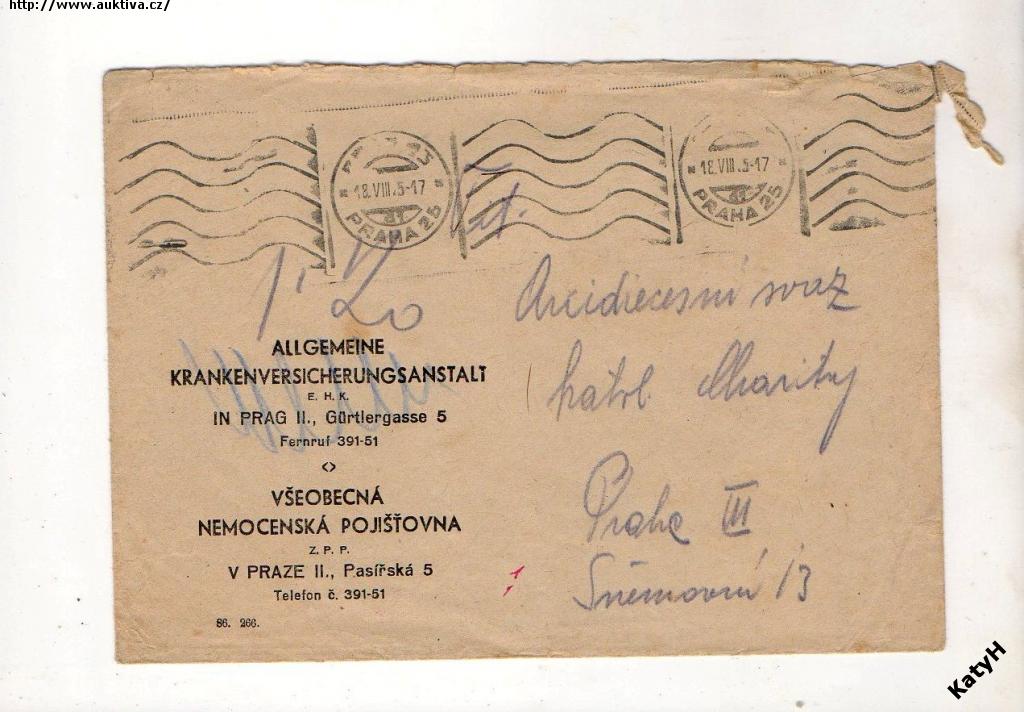 http://www.auktiva.cz/
18.VIII.5-17
PRAHA 25
18.VIII.5-17
PRAHA 25
Arcidiecesní svaz
katol. Charity
Praha III
Sněmovní 13
ALLGEMEINE
KRANKENVERSICHERUNGSANSTALT
E. H. K.
IN PRAG II., Gürtlergasse 5
Fernruf 391-51
<>
VŠEOBECNÁ
NEMOCENSKÁ POJIŠŤOVNA
Z. P. P.
V PRAZE II., Pasířská 5
Telefon č. 391-51
86. 266.
KatyH